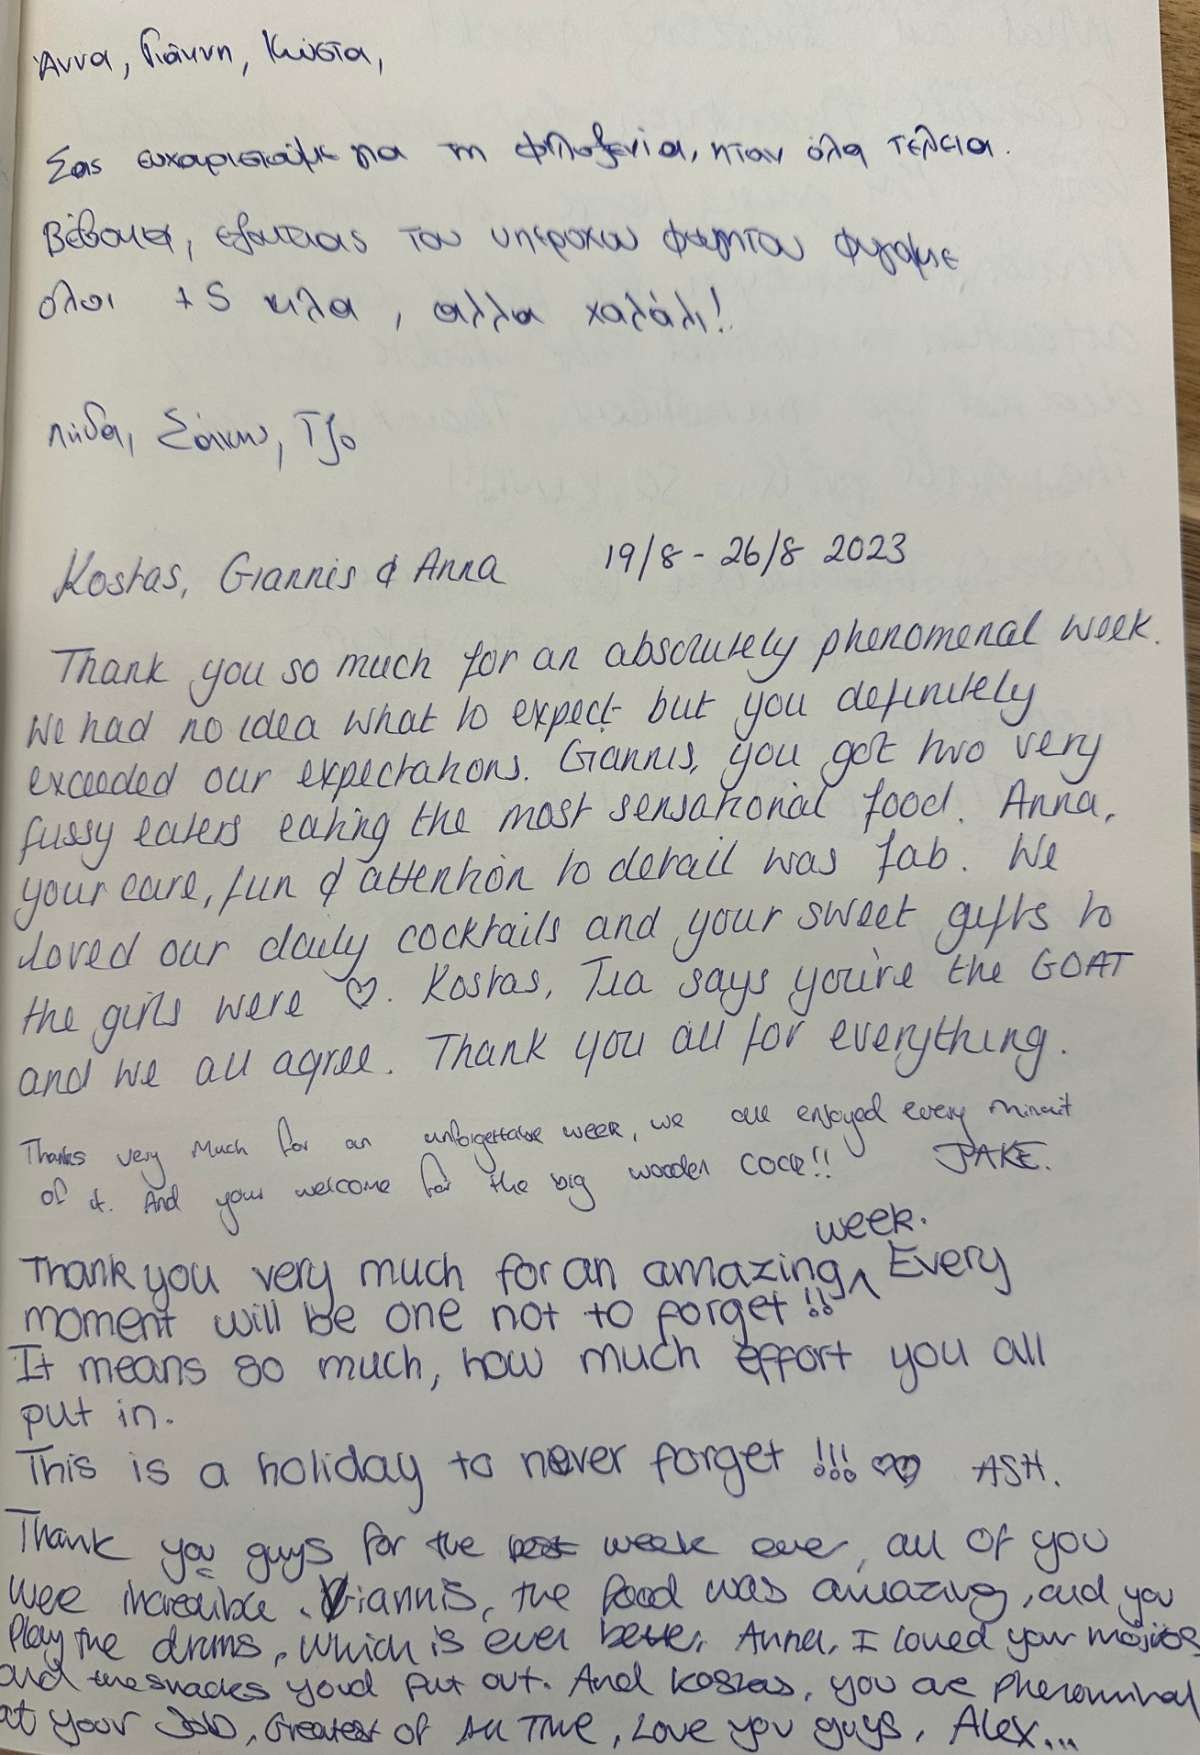 Άννα, Γιάννη, Κώστα,
Σας ευχαριστούμε για τη φιλοξενία, ηταν όλα τέλεια.
Βέβαια, εξαιτιας του υπεροχου φαγητου φυγαμε
όλοι +5 κιλα, αλλα χαλάλι!
Λήδα, Σάκης, Τζο
Kostas, Giannis & Anna 19/8 - 26/8 2023
Thank you so much for an absolutely phenomenal week.
We had no idea what to expect but you definitely
exceeded our expectations. Giannis, you got two very
fussy eaters eating the most sensational food. Anna,
your care, fun & attention to detail was fab. We
loved our daily cocktails and your sweet gifts to
the girls were ♡. Kostas, Tia says you're the GOAT
and we all agree. Thank you all for everything.
Thanks very much for an unforgettable week, we all enjoyed every minuit
of it. And your welcome for the big wooden COCK!! JAKE.
week.
Thank you very much for an amazing ^ Every
moment will be one not to forget!!
It means so much, how much effort you all
put in.
This is a holiday to never forget!!! ♡♡ ASH.
Thank you guys for the best week ever, all of you
were incredible. Giannis, the food was amazing, and you
Play the drums, which is even better. Anna, I loved your mojitos
and the snacks you'd put out. And Kostas, you are Phenominal
at your JOb, Greatest of All Time, Love you guys, Alex...